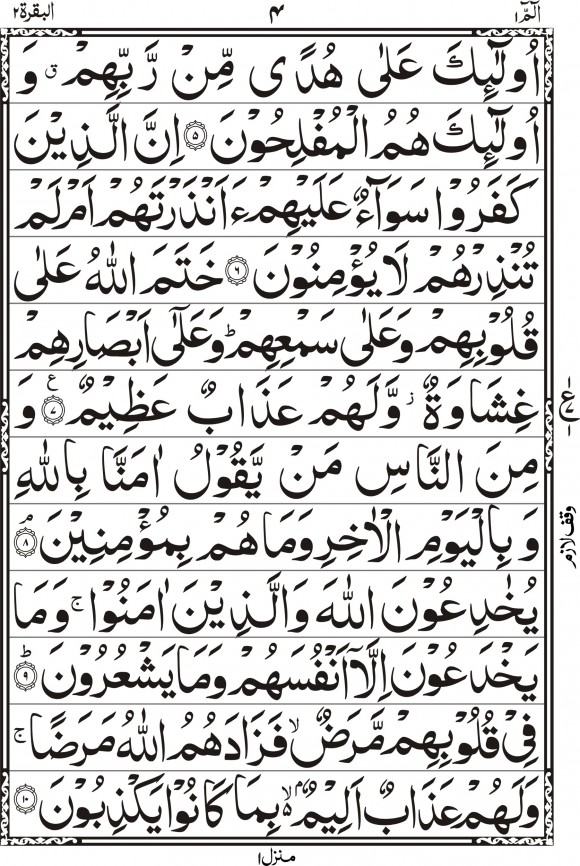 الٓمّٓ ١ ۴ البقرة ٢
اُولٰٓئِكَ عَلٰى هُدًى مِّنْ رَّبِّهِمْ ۗ وَ
اُولٰٓئِكَ هُمُ الْمُفْلِحُوْنَ ۝۵ اِنَّ الَّذِيْنَ
كَفَرُوْا سَوَآءٌ عَلَيْهِمْ ءَاَنْذَرْتَهُمْ اَمْ لَمْ
تُنْذِرْهُمْ لَا يُؤْمِنُوْنَ ۝۶ خَتَمَ اللّٰهُ عَلٰى
قُلُوْبِهِمْ وَعَلٰى سَمْعِهِمْ ؕ وَعَلٰٓى اَبْصَارِهِمْ
غِشَاوَةٌ ز وَّلَهُمْ عَذَابٌ عَظِيْمٌ ۝۷ ع وَ
مِنَ النَّاسِ مَنْ يَّقُوْلُ اٰمَنَّا بِاللّٰهِ
وَ بِالْيَوْمِ الْاٰخِرِ وَمَا هُمْ بِمُؤْمِنِيْنَ ۘ ۝۸
يُخٰدِعُوْنَ اللّٰهَ وَالَّذِيْنَ اٰمَنُوْا ۚ وَمَا
يَخْدَعُوْنَ اِلَّآ اَنْفُسَهُمْ وَمَا يَشْعُرُوْنَ ؕ ۝۹
فِيْ قُلُوْبِهِمْ مَّرَضٌ ۙ فَزَادَهُمُ اللّٰهُ مَرَضًا ۚ
وَلَهُمْ عَذَابٌ اَلِيْمٌ ۢ ۙ۬ بِمَا كَانُوْا يَكْذِبُوْنَ ۝۱۰
ع
وقف لازم
منزل ١